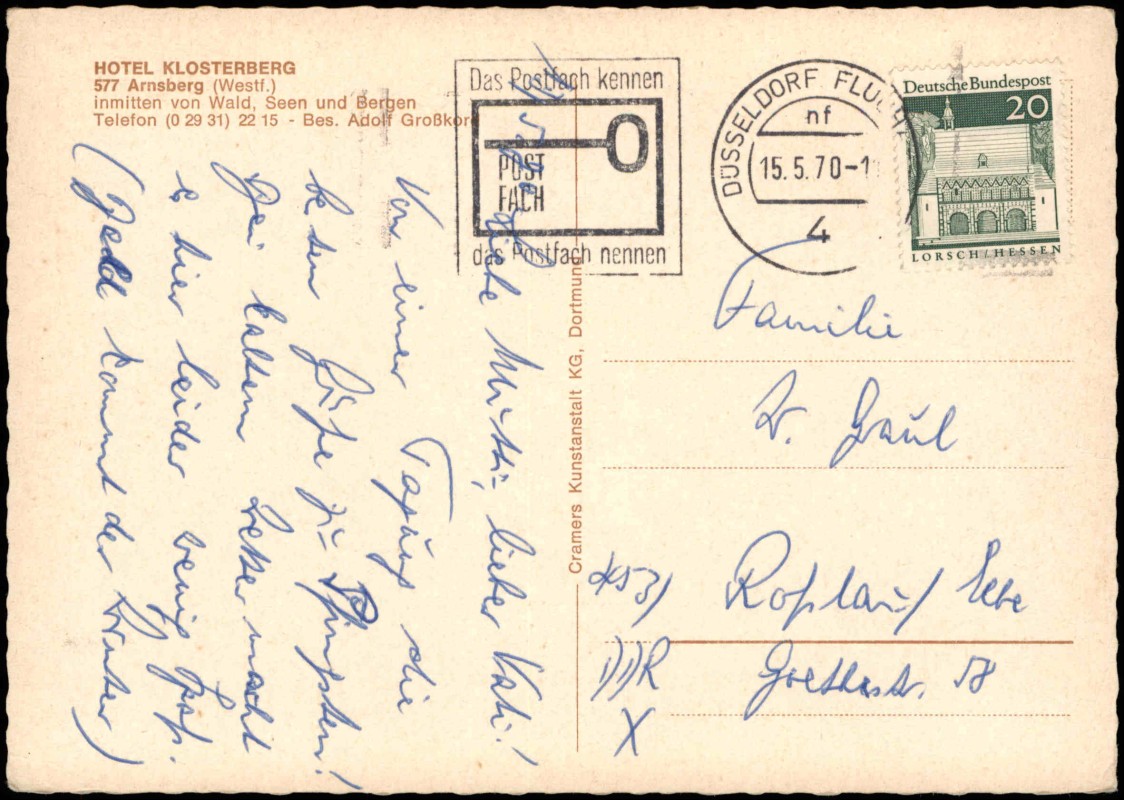 HOTEL KLOSTERBERG
577 Arnsberg (Westf.)
inmitten von Wald, Seen und Bergen
Telefon (0 29 31) 22 15 - Bes. Adolf Großkor
Das Postfach kennen
POST
FACH
das Postfach nennen
DÜSSELDORF FLU
nf
15.5.70-1
4
Deutsche Bundespost
20
LORSCH/HESSEN
Cramers Kunstanstalt KG, Dortmund
Liebe Mutti, lieber Vati!
Von einer Tagung die
besten Grüße zu Pfingsten!
Bei kaltem Wetter macht
es hier leider wenig Spaß.
(Bald kommt der Winter)
Familie
W. Gaul
453)
Roßlau/ Elbe
DDR
Goethestr. 58
X